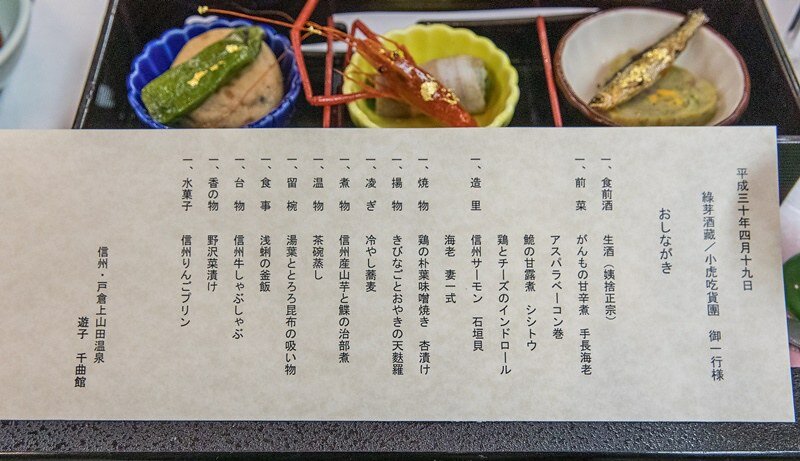 平成三十年四月十九日
綠芽酒藏／小虎吃貨團　御一行様
おしながき
一、食前酒　生酒（姨捨正宗）
一、前　菜　がんもの甘辛煮　手長海老
アスパラベーコン巻
鮠の甘露煮　シシトウ
鶏とチーズのインドロール
一、造　里　信州サーモン　石垣貝
海老　妻一式
一、焼　物　鶏の朴葉味噌焼き　杏漬け
一、揚　物　きびなごとおやきの天麩羅
一、凌　ぎ　冷やし蕎麦
一、煮　物　信州産山芋と鰈の治部煮
一、温　物　茶碗蒸し
一、留　椀　湯葉ととろろ昆布の吸い物
一、食　事　浅蜊の釜飯
一、台　物　信州牛しゃぶしゃぶ
一、香の物　野沢菜漬け
一、水菓子　信州りんごプリン
信州・戸倉上山田温泉
遊子　千曲館